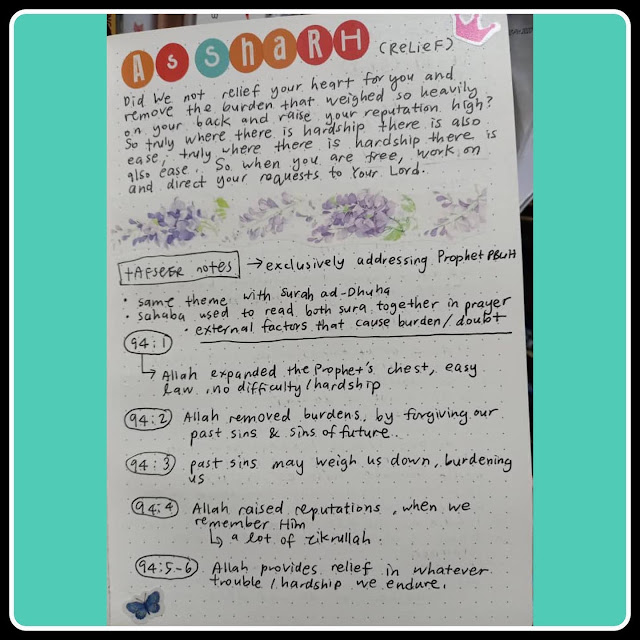 As sharh (ReLieF)
Did We not relief your heart for you and
remove the burden that weighed so heavily
on your back and raise your reputation high?
So truly where there is hardship there is also
ease, truly where there is hardship there is
also ease. So when you are free, work on
and direct your requests to Your Lord.
tAFSEER notes → exclusively addressing Prophet PBUH
• same theme with surah ad-Dhuha
• sahaba used to read both sura together in prayer
• external factors that cause burden/doubt
94:1
↳ Allah expanded the Prophet's chest, easy
law, no difficulty/hardship
94:2 Allah removed burdens, by forgiving our
past sins & sins of future.
94:3 past sins may weigh us down, burdening
us
94:4 Allah raised reputations, when we
remember Him
↳ a lot of zikrullah.
94:5-6 Allah provides relief in whatever
trouble/hardship we endure.